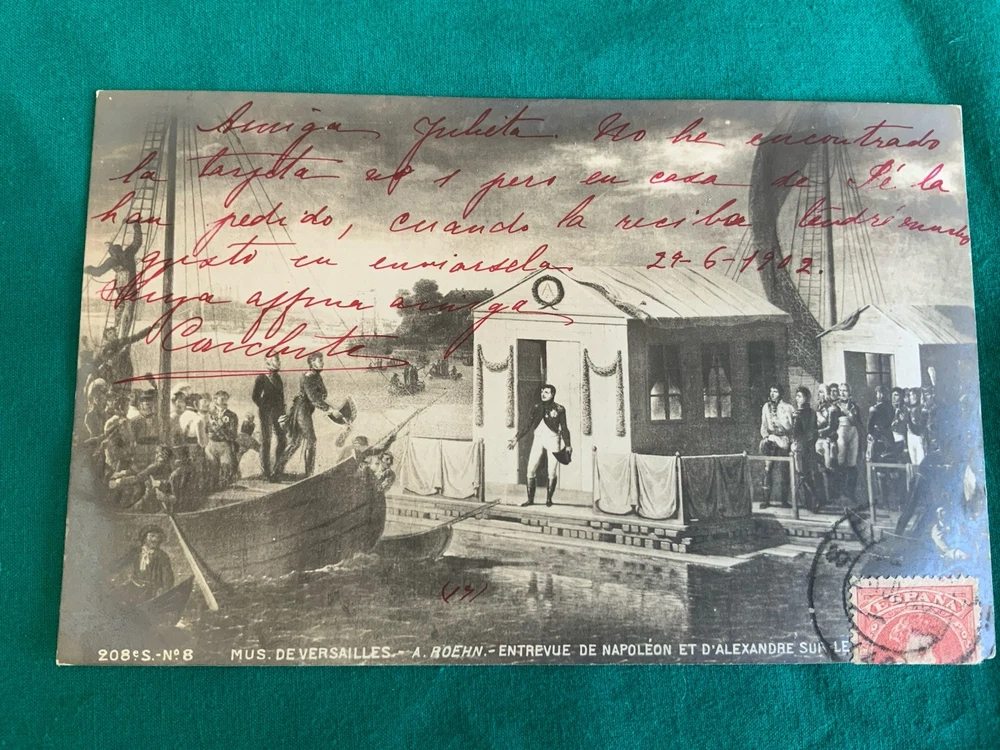 Amiga Julieta. No he encontrado
la tarjeta nº 1 pero en casa de Fé la
han pedido, cuando la reciba tendré mucho
gusto en enviarsela 24-6-1902.
Suya affma amiga
Conchita
A
(17)
208e S.-No 8 MUS. DE VERSAILLES.- A. ROEHN.- ENTREVUE DE NAPOLÉON ET D'ALEXANDRE SUR LE
ESPAÑA